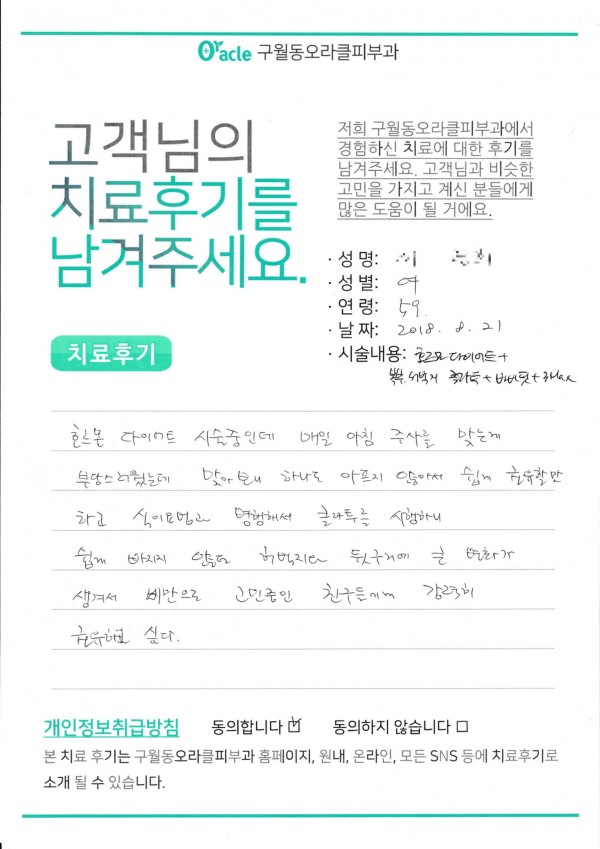 Oracle 구월동오라클피부과
고객님의
치료후기를
남겨주세요.
저희 구월동오라클피부과에서
경험하신 치료에 대한 후기를
남겨주세요. 고객님과 비슷한
고민을 가지고 계신 분들에게
많은 도움이 될 거에요.
· 성 명:
· 성 별: 여
· 연 령: 59.
· 날 짜: 2018. 8. 21
· 시술내용: 호르몬 다이어트+
+ 바비핏 +
치료후기
호르몬 다이어트 시술중인데 매일 아침 주사를 맞는게
부담스러웠는데 맞아보니 하나도 아프지 않아서 쉽게 권유할만
하고 식이요법과 병행해서 쿨라투를 시행하니
쉽게 빠지지 않던 허벅지와 뒷구리에 큰 변화가
생겨서 비만으로 고민중인 친구들에게 강력히
권유하고 싶다.
개인정보취급방침 동의합니다 ☑ 동의하지 않습니다 □
본 치료 후기는 구월동오라클피부과 홈페이지, 원내, 온라인, 모든 SNS 등에 치료후기로
소개 될 수 있습니다.